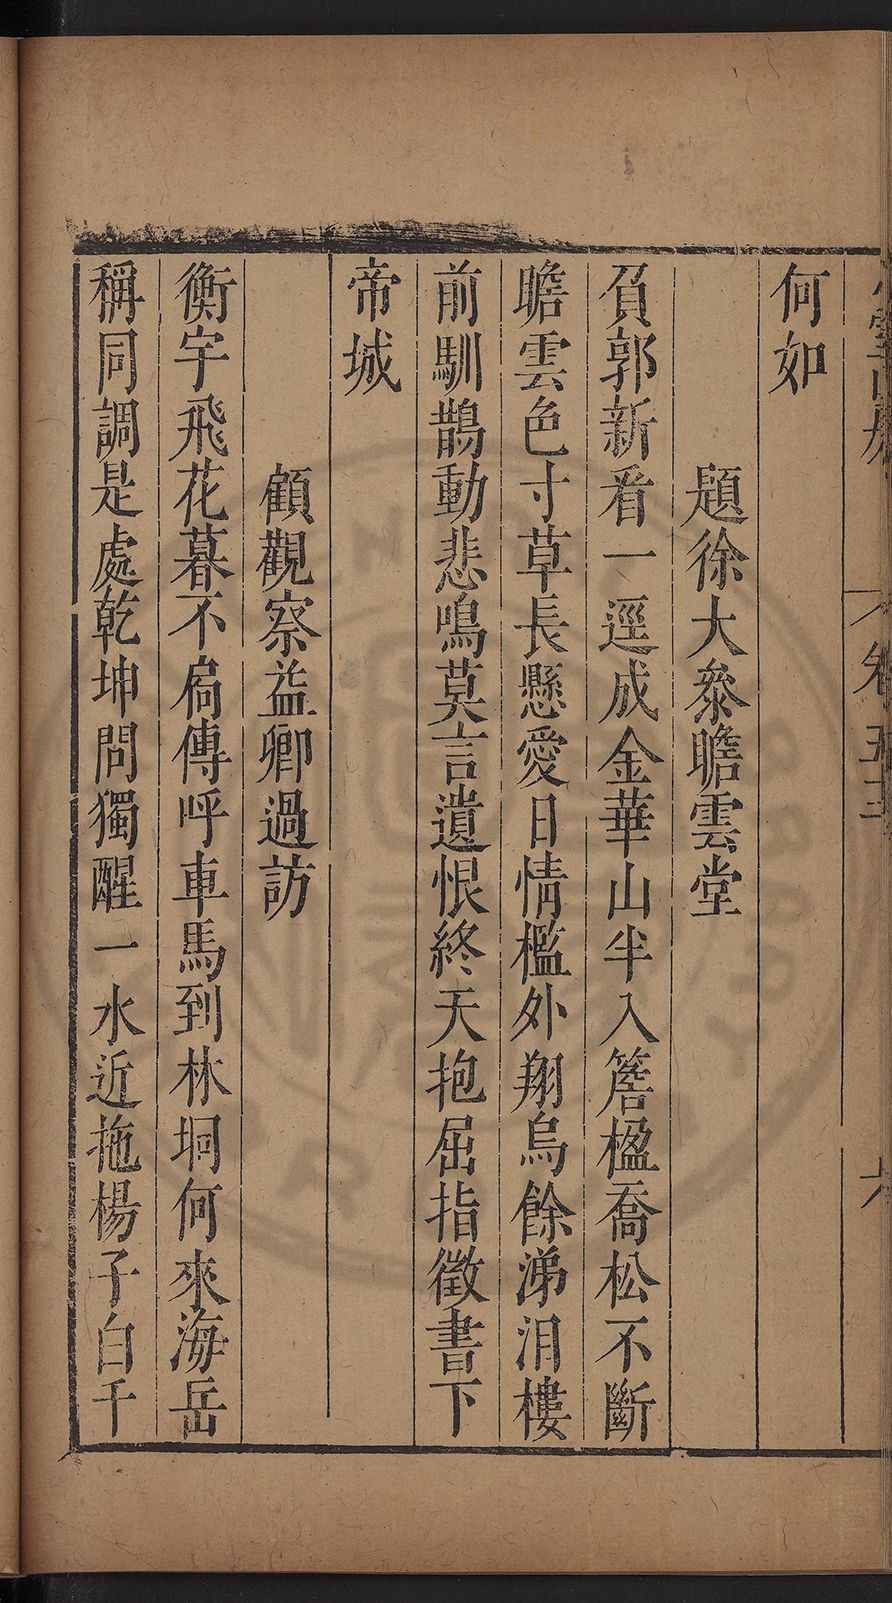 何如
題徐大參瞻雲堂
負郭新看一逕成金華山半入簷楹喬松不斷
瞻雲色寸草長懸愛日情檻外翔烏餘涕泪樓
前馴鵲動悲鳴莫言遺恨終天抱屈指徵書下
帝城
顧觀察益卿過訪
衡宇飛花暮不扃傳呼車馬到林坰何來海岳
稱同調是處乾坤問獨醒一水近拖楊子白千